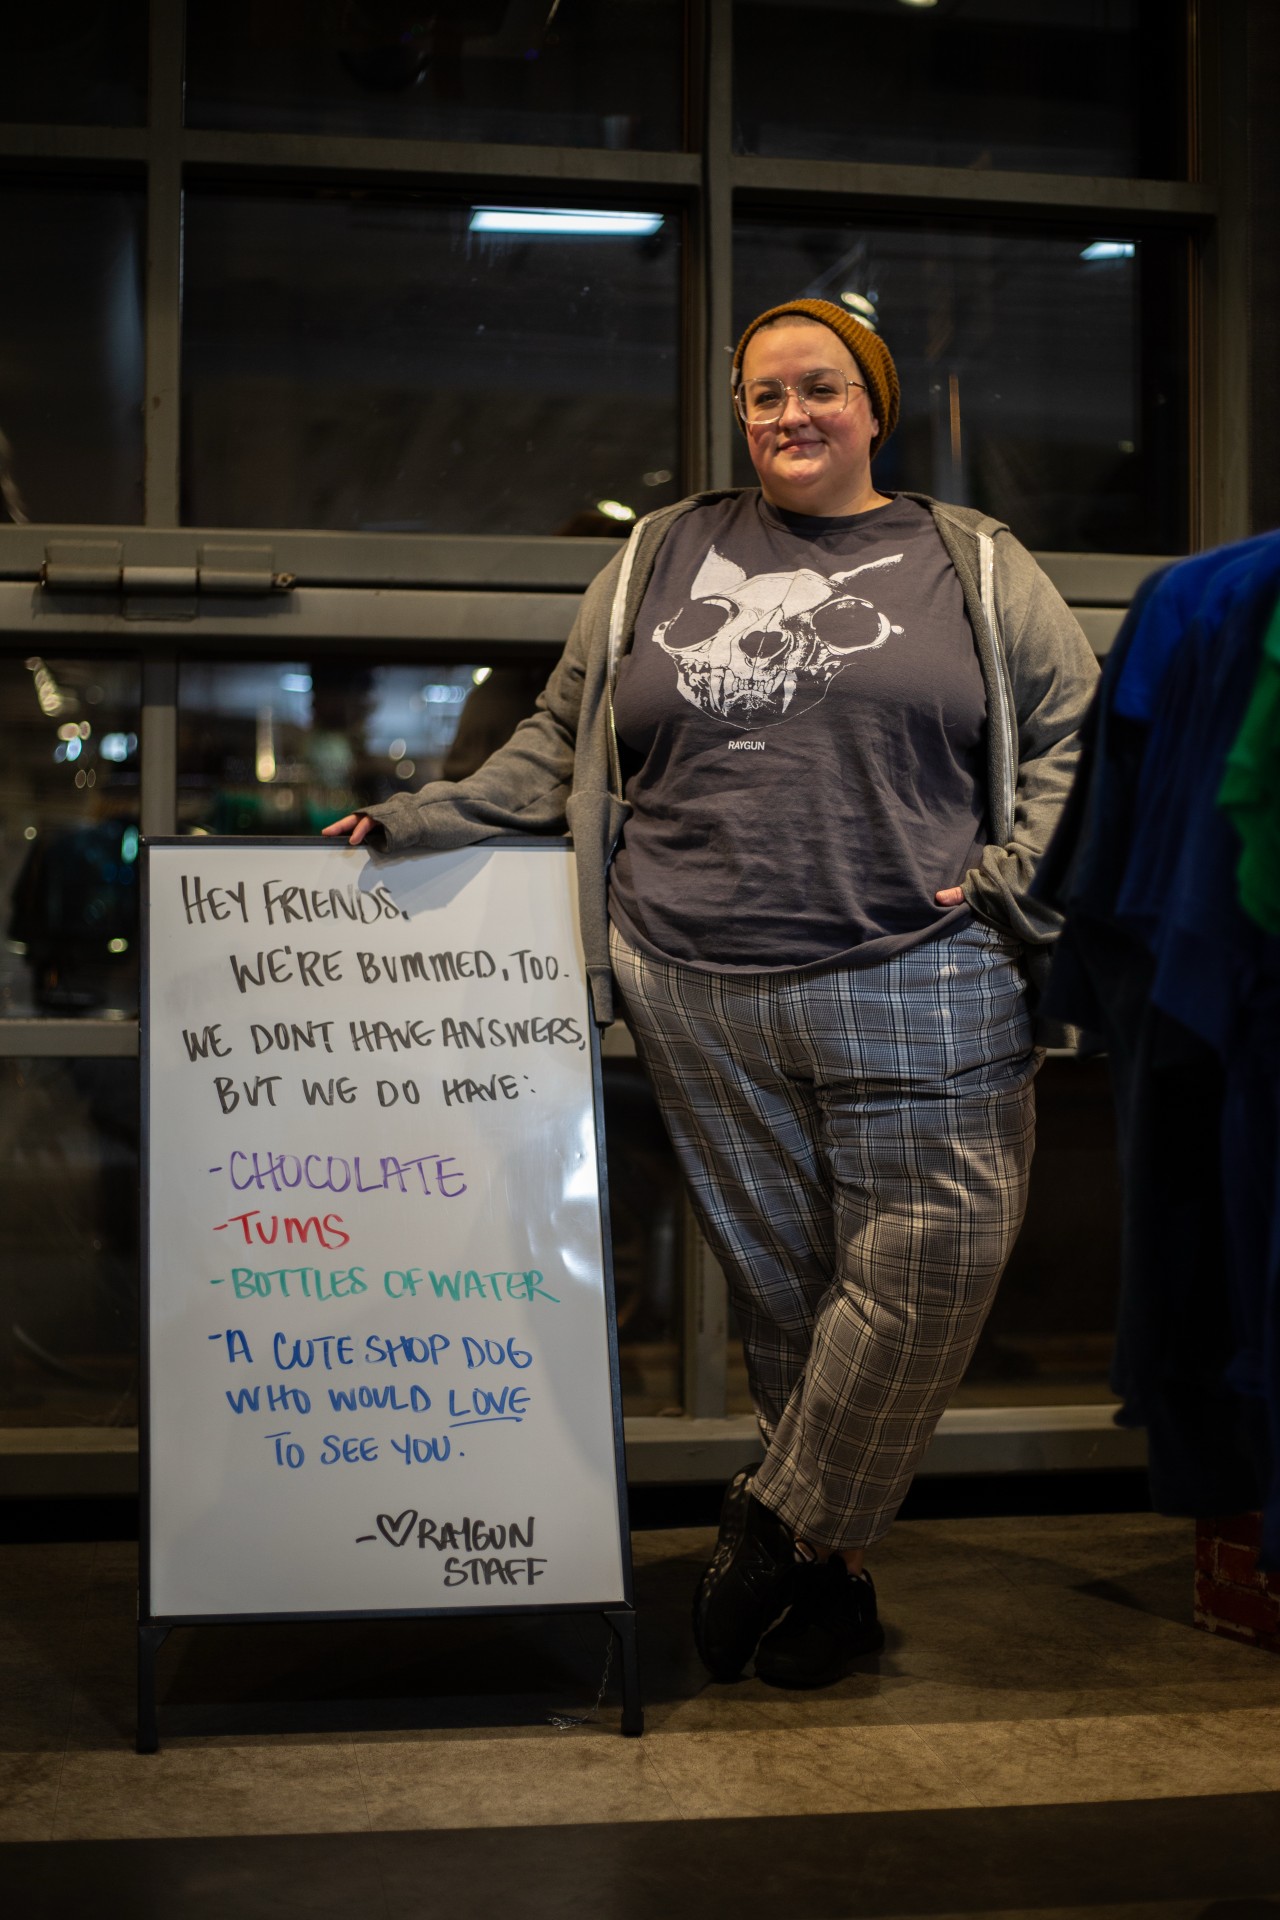 RAYGUN
HEY FRIENDS,
WE'RE BUMMED, TOO.
WE DON'T HAVE ANSWERS,
BUT WE DO HAVE:
-CHOCOLATE
-TUMS
-BOTTLES OF WATER
-A CUTE SHOP DOG
WHO WOULD LOVE
TO SEE YOU.
-♡RAYGUN
STAFF